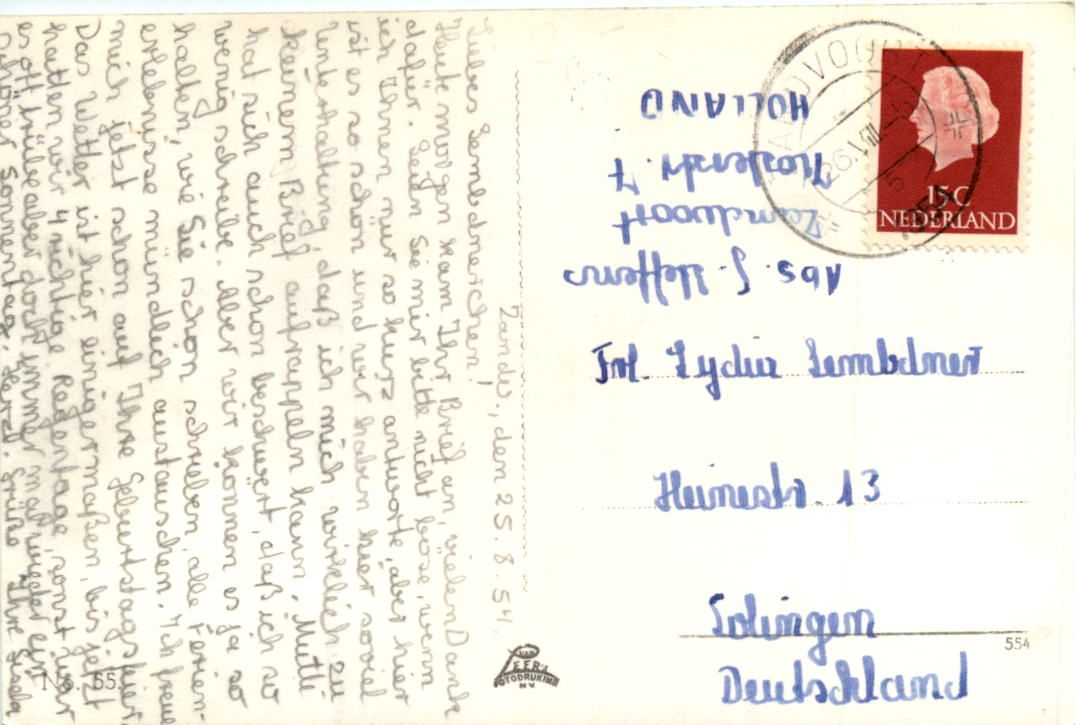 Zandv., den 25.8.54.
Liebes Lembdnerchen!
Heute morgen kam Ihr Brief an, vielen Dank
dafür. Seien Sie mir bitte nicht böse, wenn
ich Ihnen nur so kurz antworte, aber hier
ist es so schön und wir haben hier soviel
Unterhaltung daß ich mich wirklich zu
keinem Brief aufrappeln kann. Mutti
hat sich auch schon beschwert, daß ich so
wenig schreibe. Aber wir können es ja so
halten, wie Sie schon schrieben, alle Ferien-
erlebnisse mündlich austauschen. Ich freue
mich jetzt schon auf Ihre Geburtstagsfeier.
Das Wetter ist hier einigermaßen, bis jetzt
hatten wir 4 richtige Regentage, sonst war
es oft trübe aber doch immer mal wieder ein
schöner Sonnentag. Herzl. Grüße Ihre Gisela
No. 55
VAN LEER'S
FOTODRUKIND
N.V.
Abs. J. Steffens
Zandvoort
Kosterstr. 7
HOLLAND
ZANDVOORT
26.VIII-5
1954
15 C
NEDERLAND
Frl. Lydia Lembdner
Heinestr. 13
Solingen
554
Deutschland